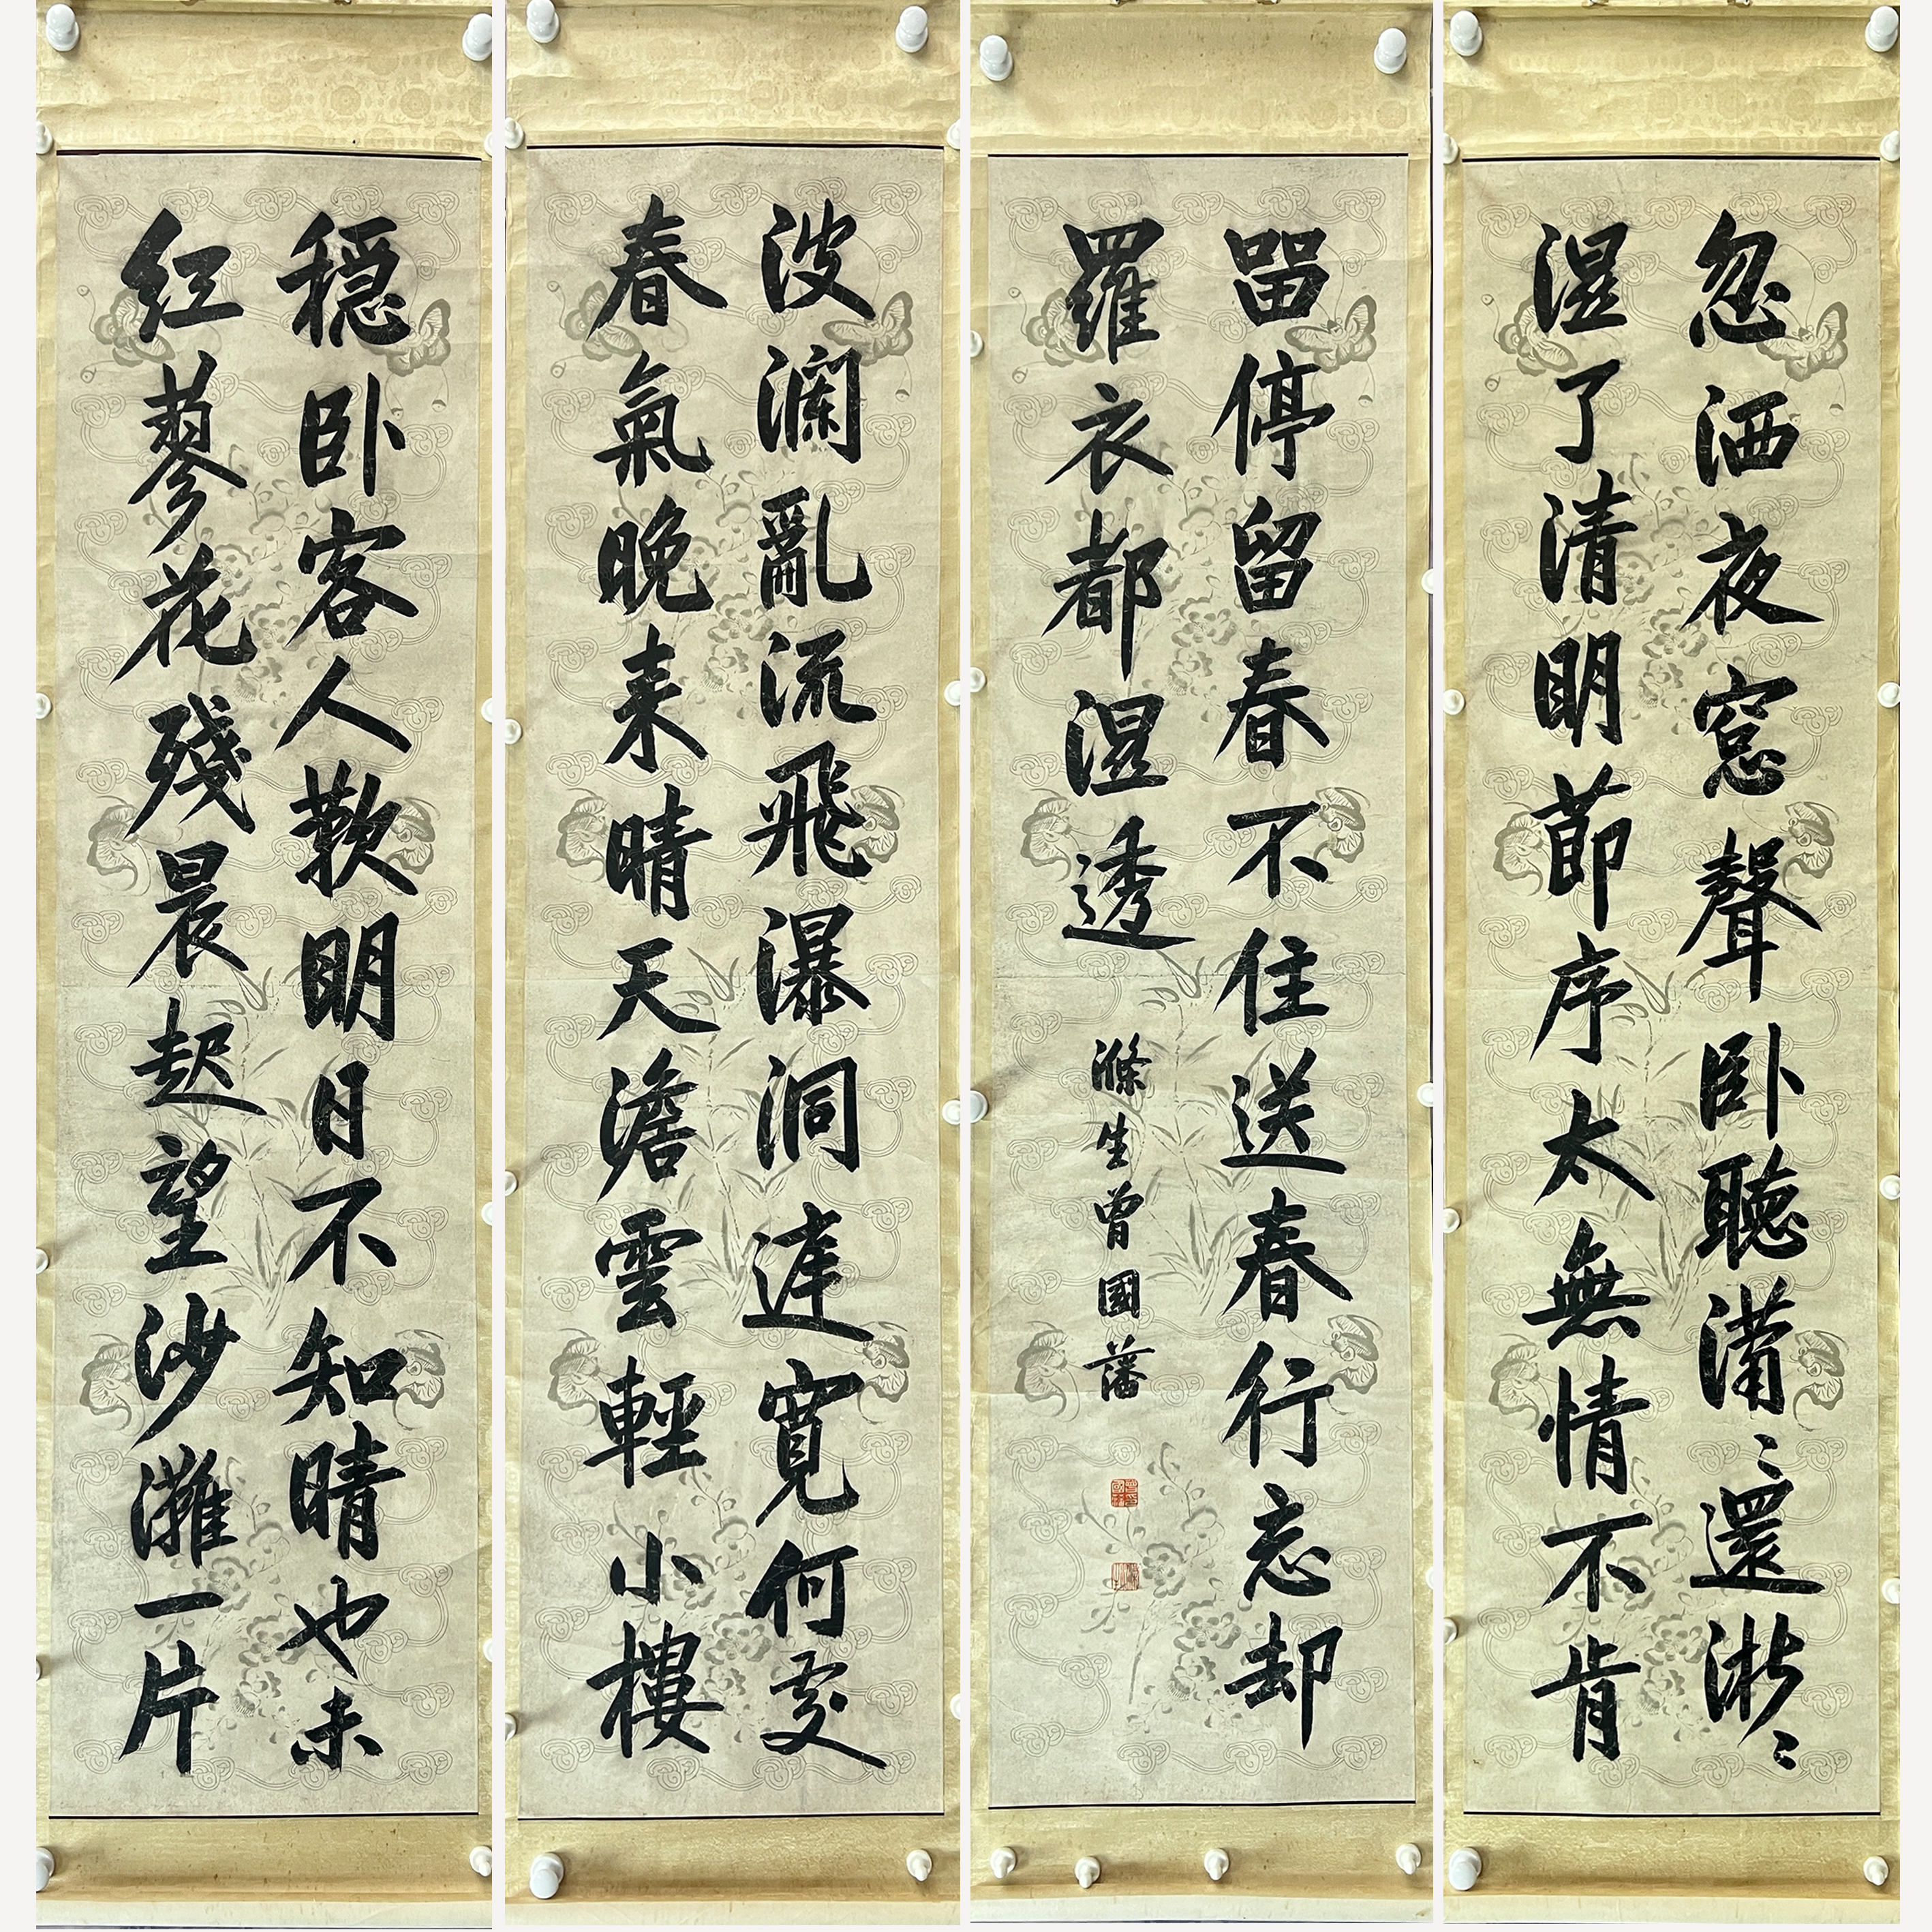 穏卧客人歎明日不知晴也未
红蓼花殘晨起望沙灘一片
波瀾亂流飛瀑洞達寬何處
春氣晚来晴天澹雲輕小樓
忽洒夜窓聲卧聽潚〻還淅〻
湿了清明莭序太無情不肯
留停留春不住送春行忘却
羅衣都湿透
滌生曾國藩